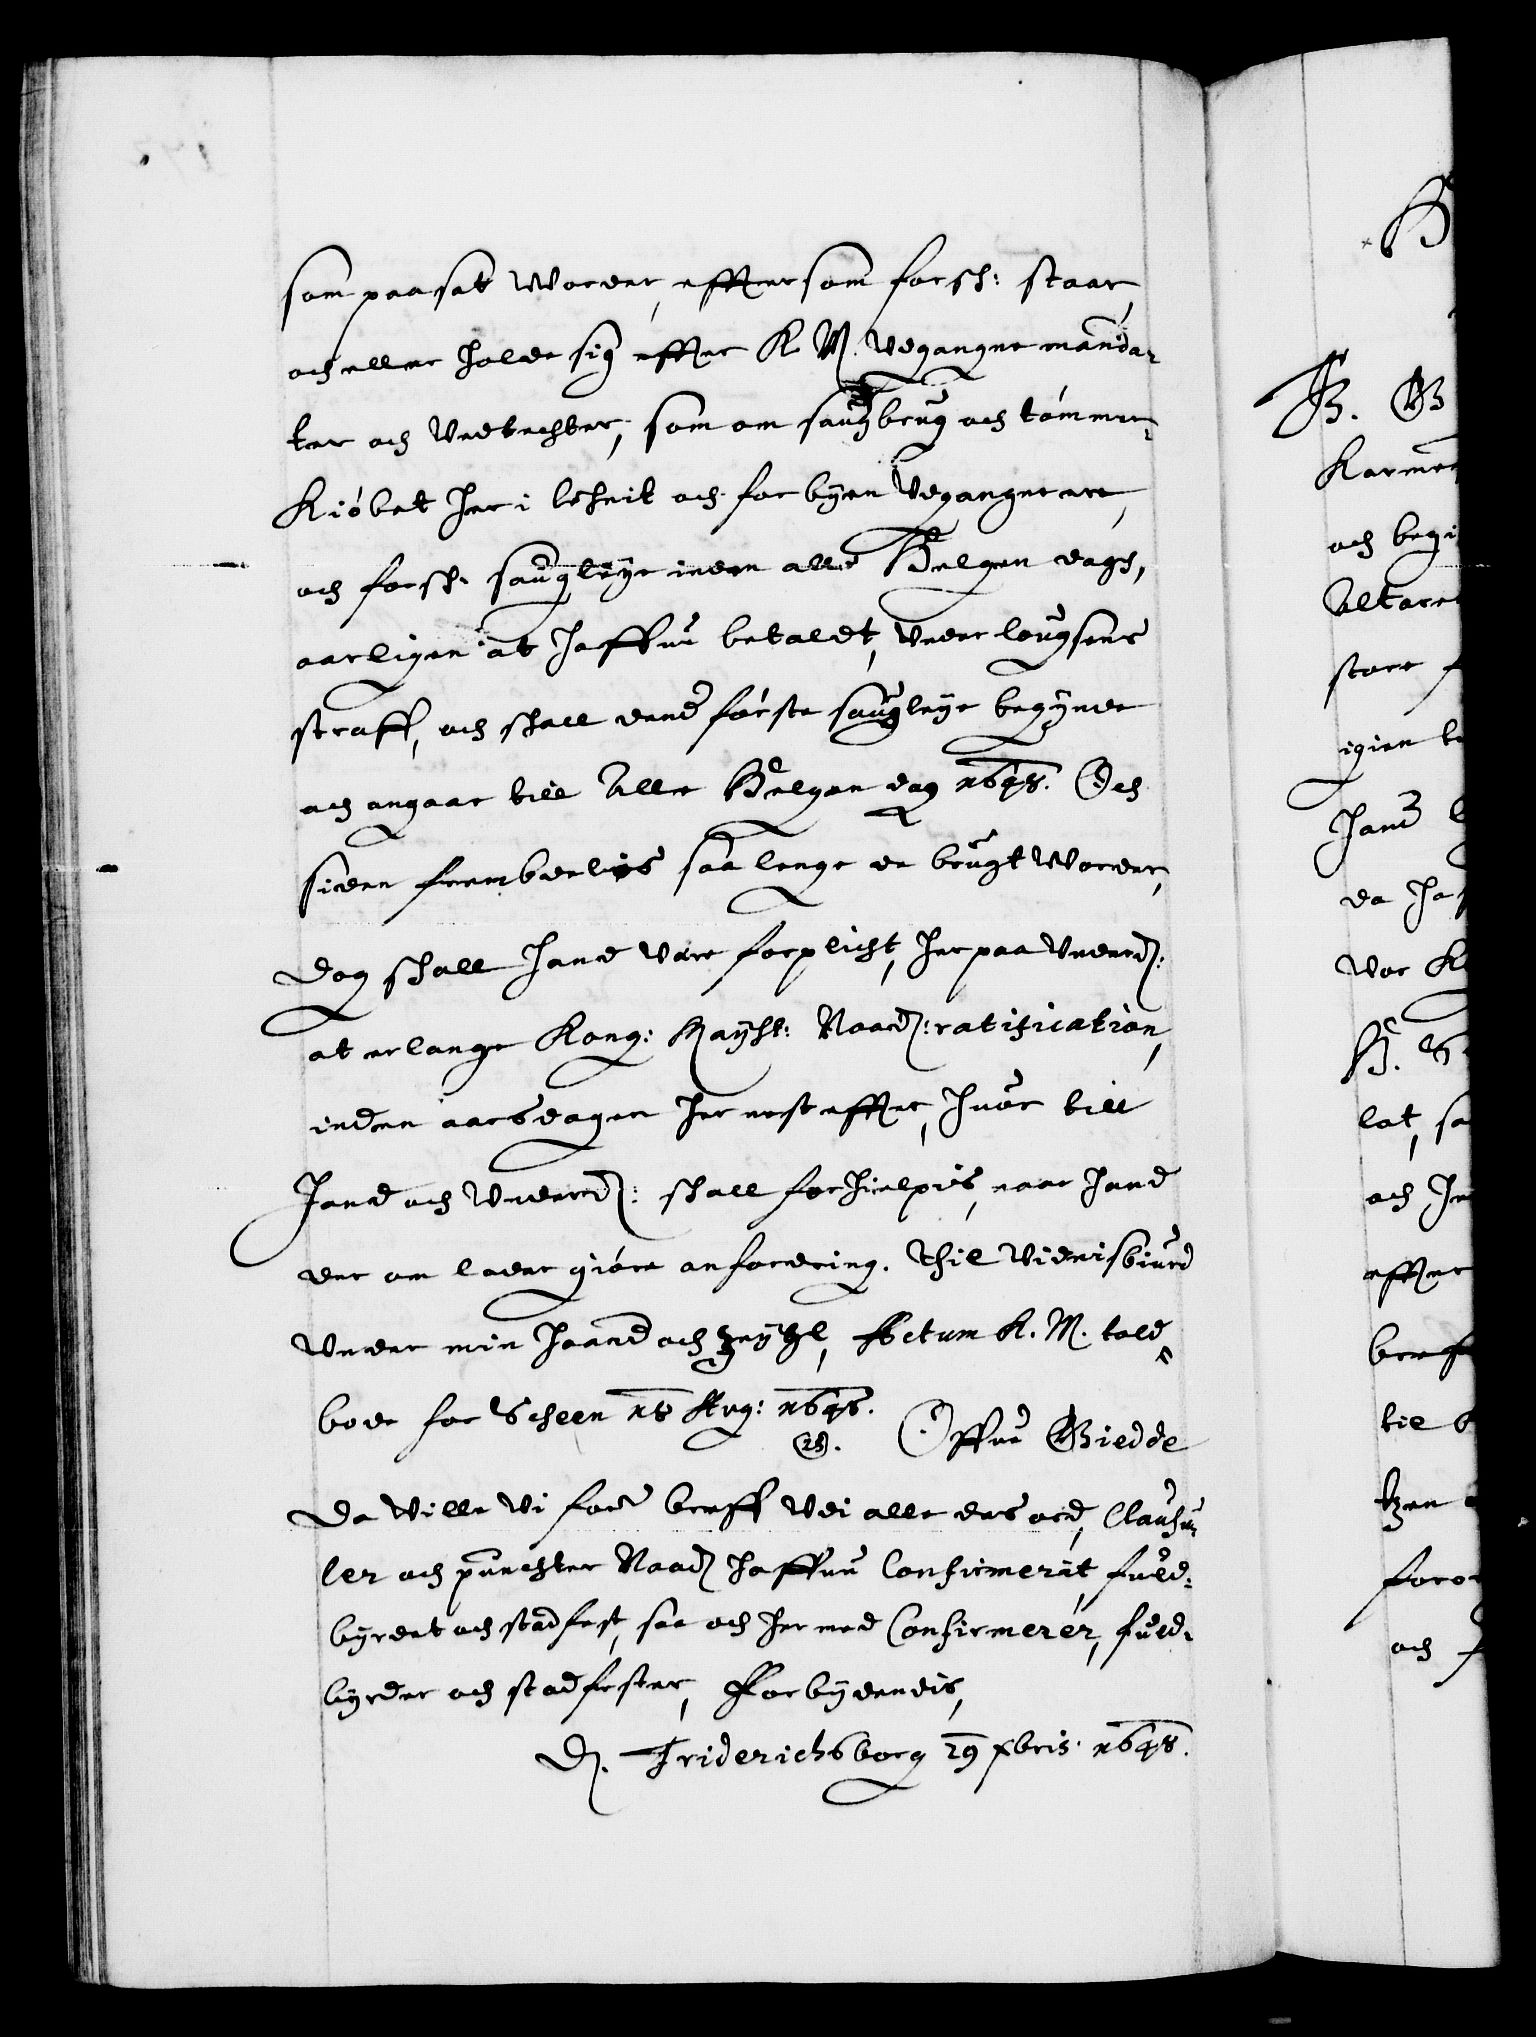 som paasat Worder, effter som forsch: staar,
och ellers holde sig effter K M. Udgangne manda-
ter och Vedtechter, som om saugbrug och tömmer-
Kiöbet her i lehnit och for byen Udgangne ere,
och forsch: saugleye inden alle Helgen dags,
aarligen at haffue betaldt, Under lougsens
straff, och schall dend förste saugleye begynde
och angaar till Alle Helgen dag 1648. Och
siden frembdelis saa lenge de brugt Worder,
Dog schall hand Vere forplicht, her paa Underd:
at erlange Kong: Mayst: Naad: ratification,
inden aarsdagen her nest effter, huor till
hand och Underd: schall forhielpis, naar hand
der om lader giöre anfordring. Thil Vidnisbiurd
Under min haand och Zeyhl, Actum K. M. told
bode for Scheen 15 Aug: 1648.
Offue Giedde
Da Wille Wi for: breff Udi alle dets ord, Clausu-
ler och puncter Naad: haffue Confirmerit, fuld-
byrdet och stadfest, saa och her med Confirmerer, fuld-
byrder och stadfester, Forbydendis,
D. Friderichsborg 29 xbris 1648.
B
B. G
Karme
och begi
Altare
store f
igien
hand
da ha
Wor K
B.
lat, sa
och
effter
til
for
och f